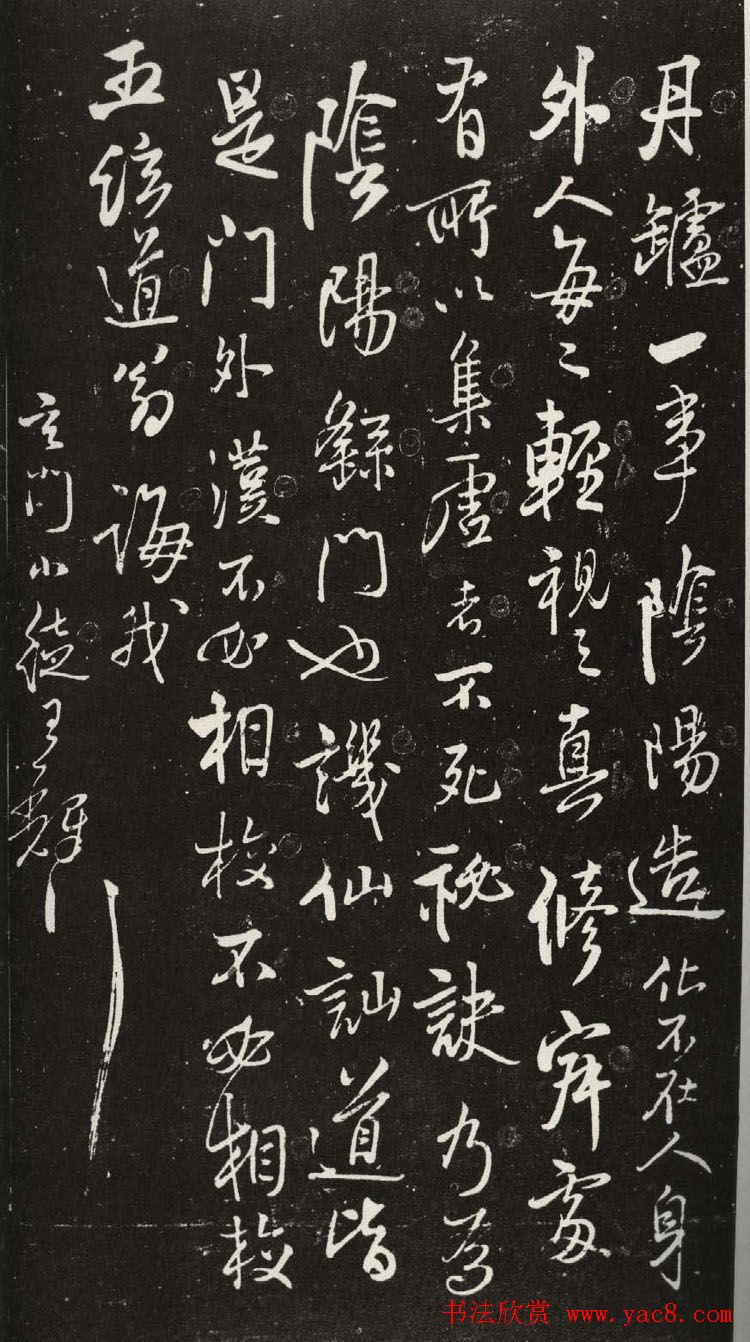 丹鑪一事陰陽造化不在人身
外人每々輕視之真修處
有所以集虛者不死秘訣乃為
陰陽繇門也譏仙訕道皆
是門外漢不必相校不必相校
五絃道翁誨我
玄門小徒王輝
书法欣赏 www.yac8.com